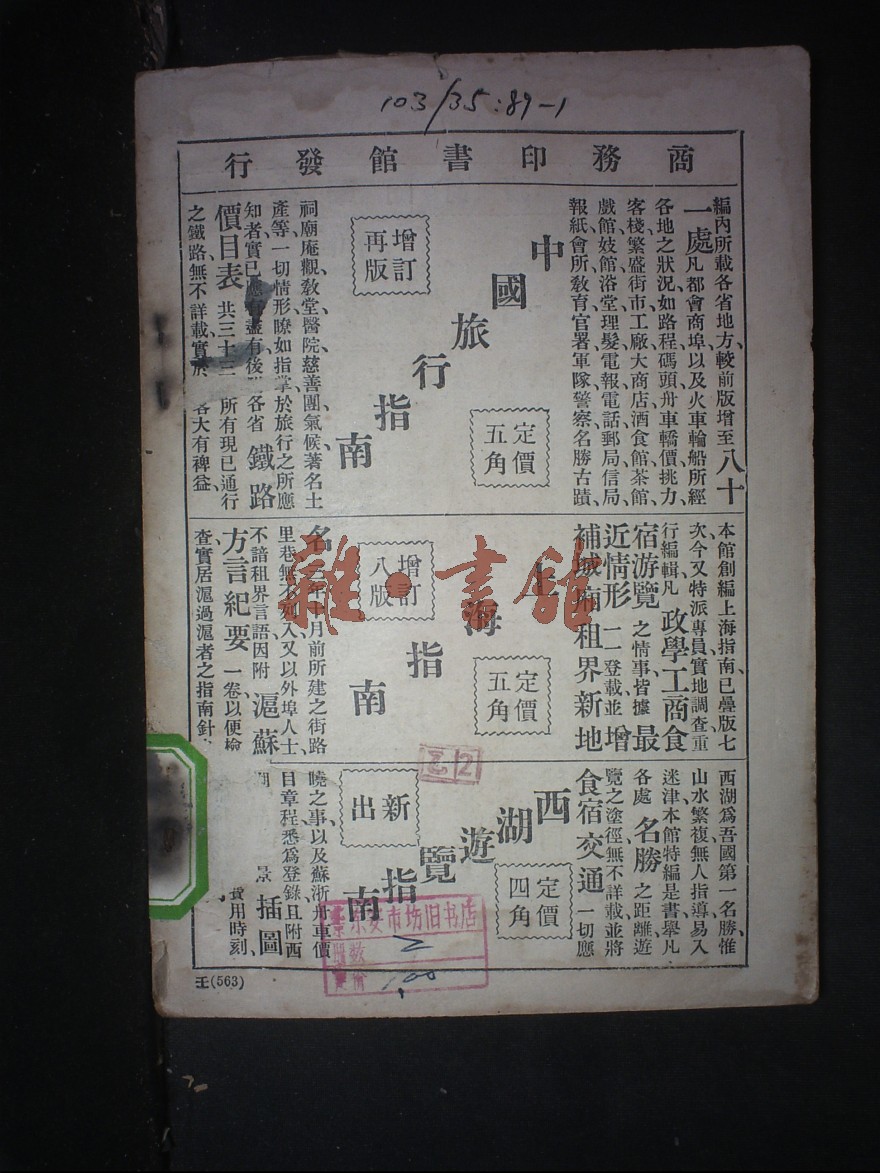 103/35:89-1
商務印書館發行
編內所載各省地方較前版增至八十
一處凡都會商埠以及火車輪船所經
各地之狀況如路程碼頭舟車轎價挑力
客棧繁盛街市工廠大商店酒食館茶館
戲館妓館浴堂理髮電報電話郵局信局
報紙會所教育官署軍隊警察名勝古蹟
中國旅行指南
增訂再版
定價五角
祠廟庵觀教堂醫院慈善團氣候著名土
產等一切情形瞭如指掌於旅行之所應
知者實已應有盡有後 各省鐵路
價目表共三十三 所有現已通行
之鐵路無不詳載實於 客大有裨益
本館創編上海指南已疊版七
次今又特派專員實地調查重
行編輯凡政學工商食
宿游覽之情事皆據最
近情形一一登載並增
補城廂租界新地
上海指南
增訂八版
定價五角
名 元年十月前所建之街路
里巷無不列入又以外埠人士
不諳租界言語因附滬蘇
方言紀要一卷以便檢
查實居滬過滬者之指南針
西湖爲吾國第一名勝惟
山水繁複無人指導易入
迷津本館特編是書舉凡
各處名勝之距離遊
覽之塗徑無不詳載並將
食宿交通一切應
西湖遊覽指南
新出
定價四角
曉之事以及蘇浙舟車價
目章程悉爲登錄且附西
湖 景插圖
費用時刻
乙2
東安市坊旧书店
2
1.00
王(563)
雜·書館